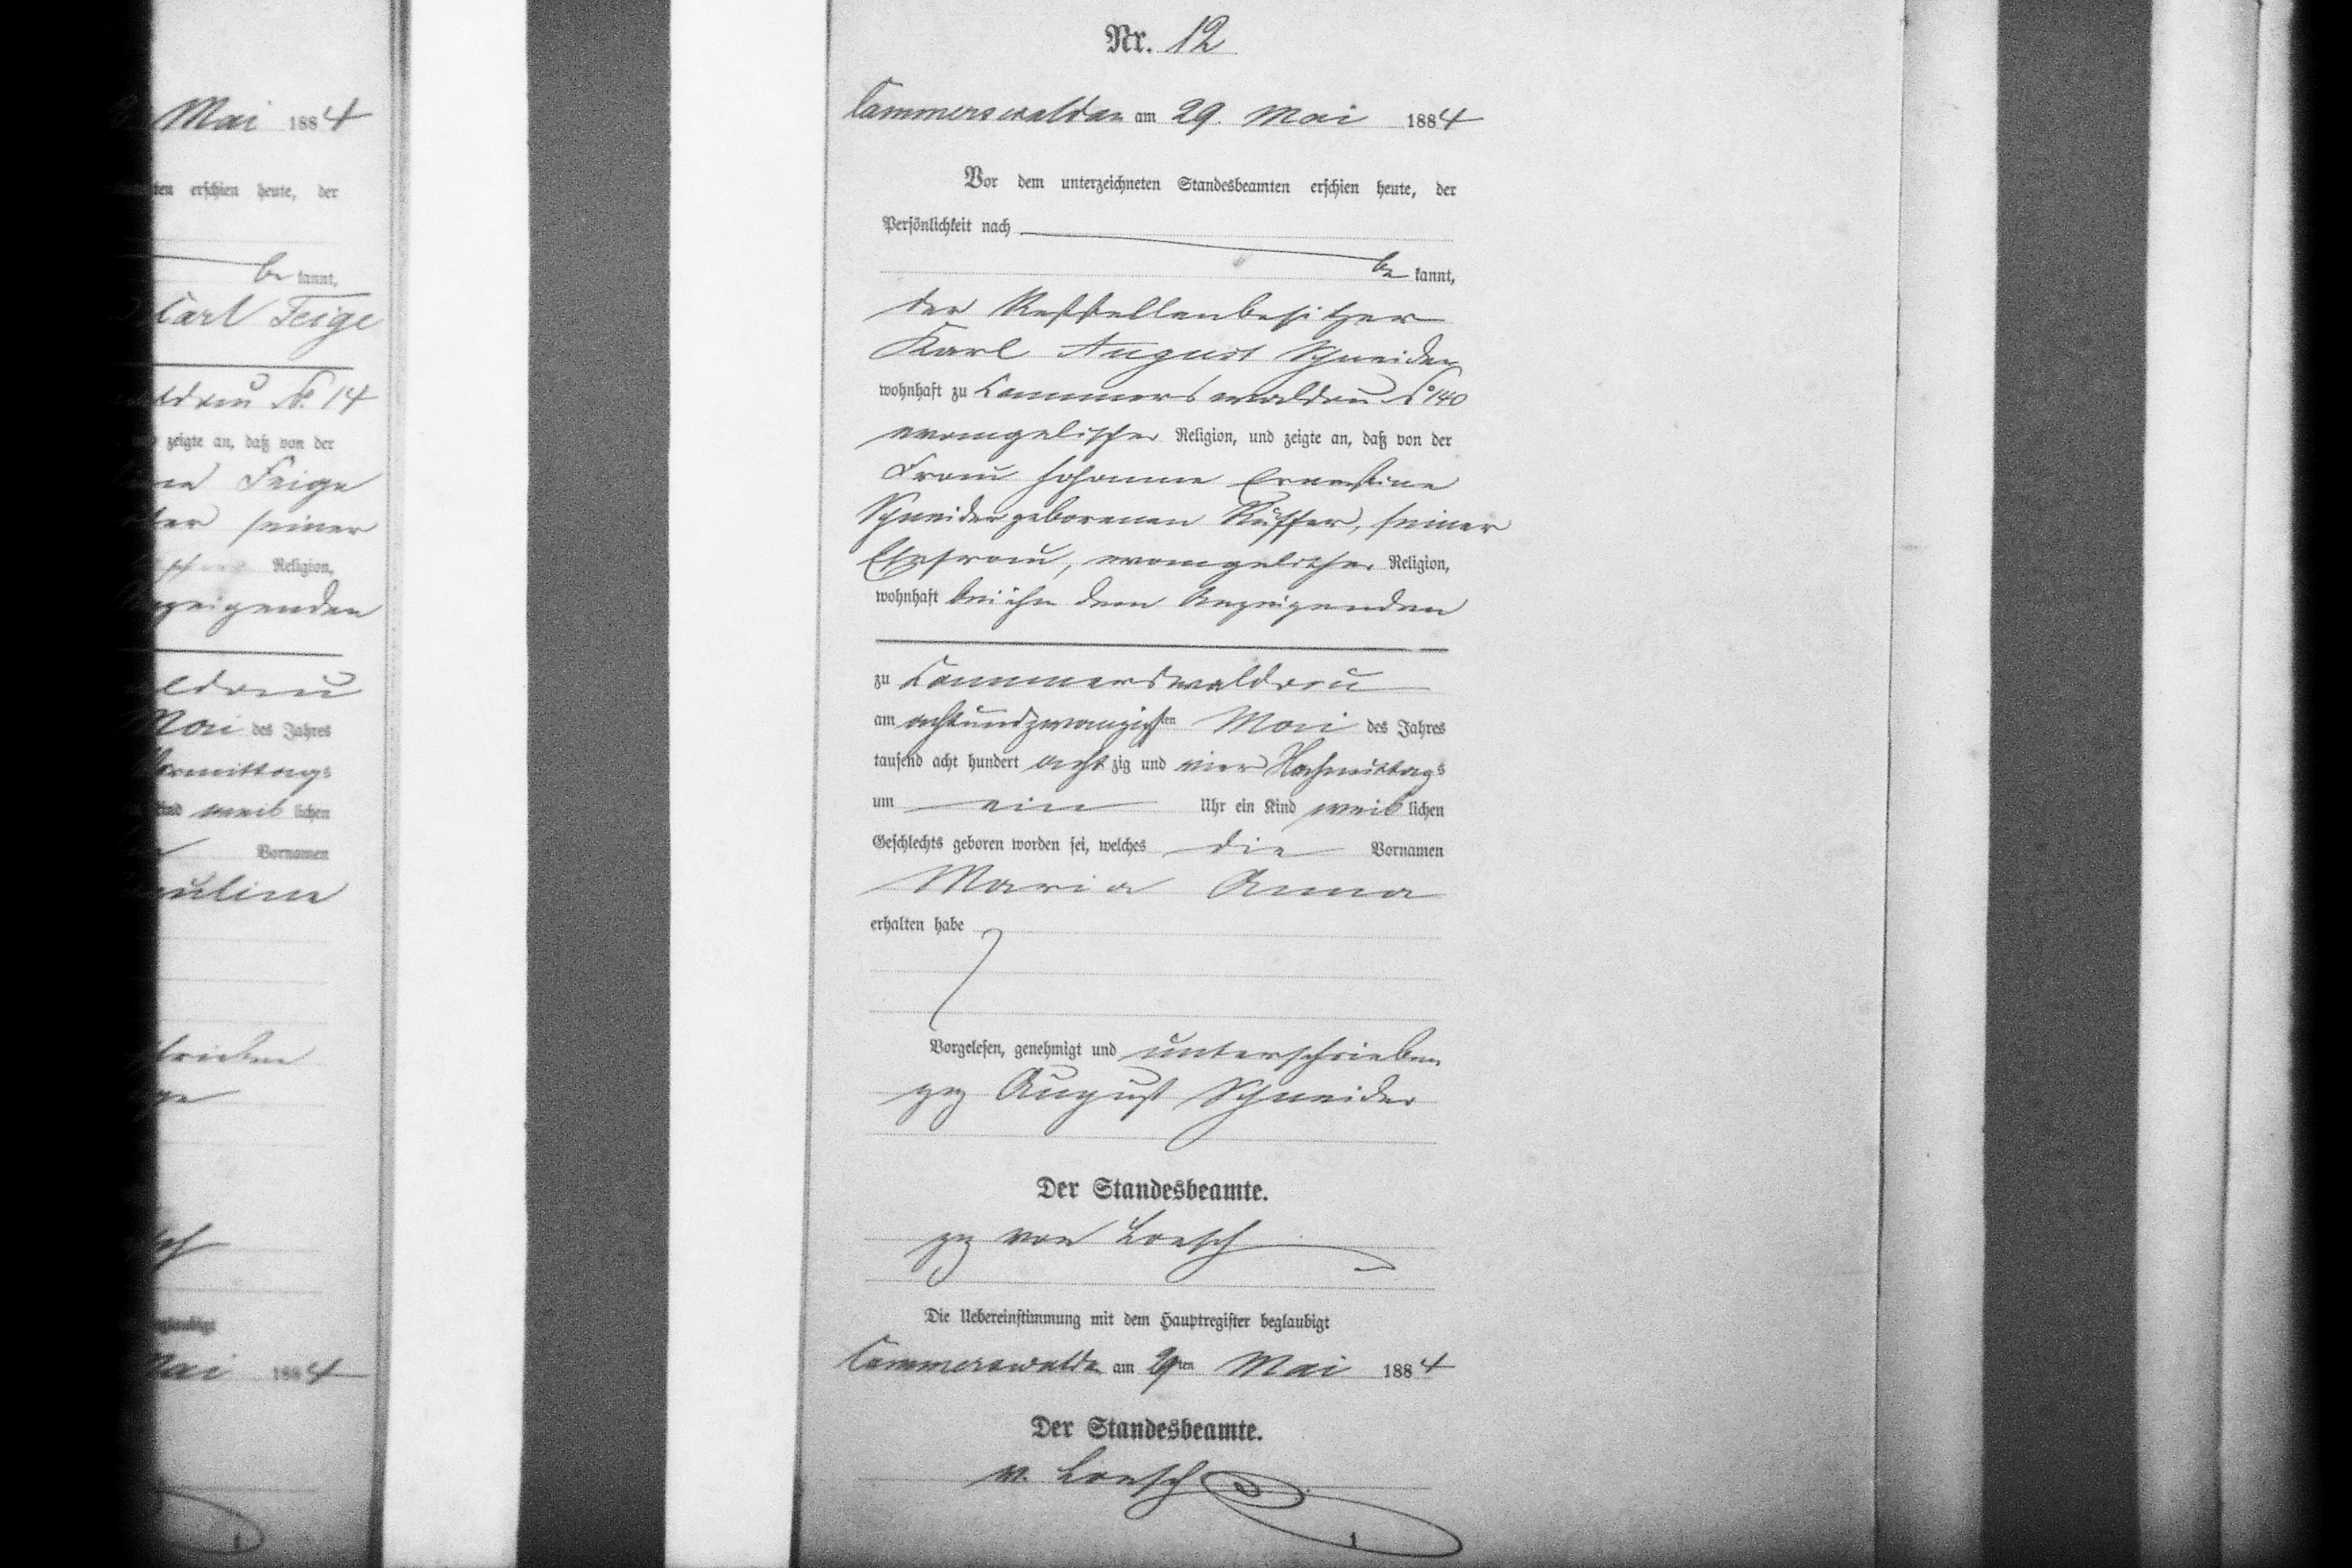 Mai 1884
ten erschien heute, der
be kannt,
Carl Feige
No. 14
zeigte an, daß von der
Feige
seiner
Religion,
Anzeigenden
Mai des Jahres
Vormittags
Kind weib lichen
Vornamen
Mai 1884
Nr. 12
Cammerswaldau am 29. Mai 1884
Vor dem unterzeichneten Standesbeamten erschien heute, der
Persönlichkeit nach
be kannt,
der Reststellenbesitzer
Karl August Schneider
wohnhaft zu Cammerswaldau No 140
evangelischer Religion, und zeigte an, daß von der
Frau Johanne Ernestine
Schneider geborenen Rüffer, seiner
Ehefrau, evangelischer Religion,
wohnhaft bei ihm dem Anzeigenden
zu Cammerswaldau
am achtundzwanzigsten Mai des Jahres
tausend acht hundert acht zig und vier Nachmittags
um ein Uhr ein Kind weib lichen
Geschlechts geboren worden sei, welches die Vornamen
Maria Anna
erhalten habe
Vorgelesen, genehmigt und unterschrieben
gez August Schneider
Der Standesbeamte.
gez von Loesch
Die Uebereinstimmung mit dem Hauptregister beglaubigt
Cammerswalda am 29ten Mai 1884
Der Standesbeamte.
v. Loesch